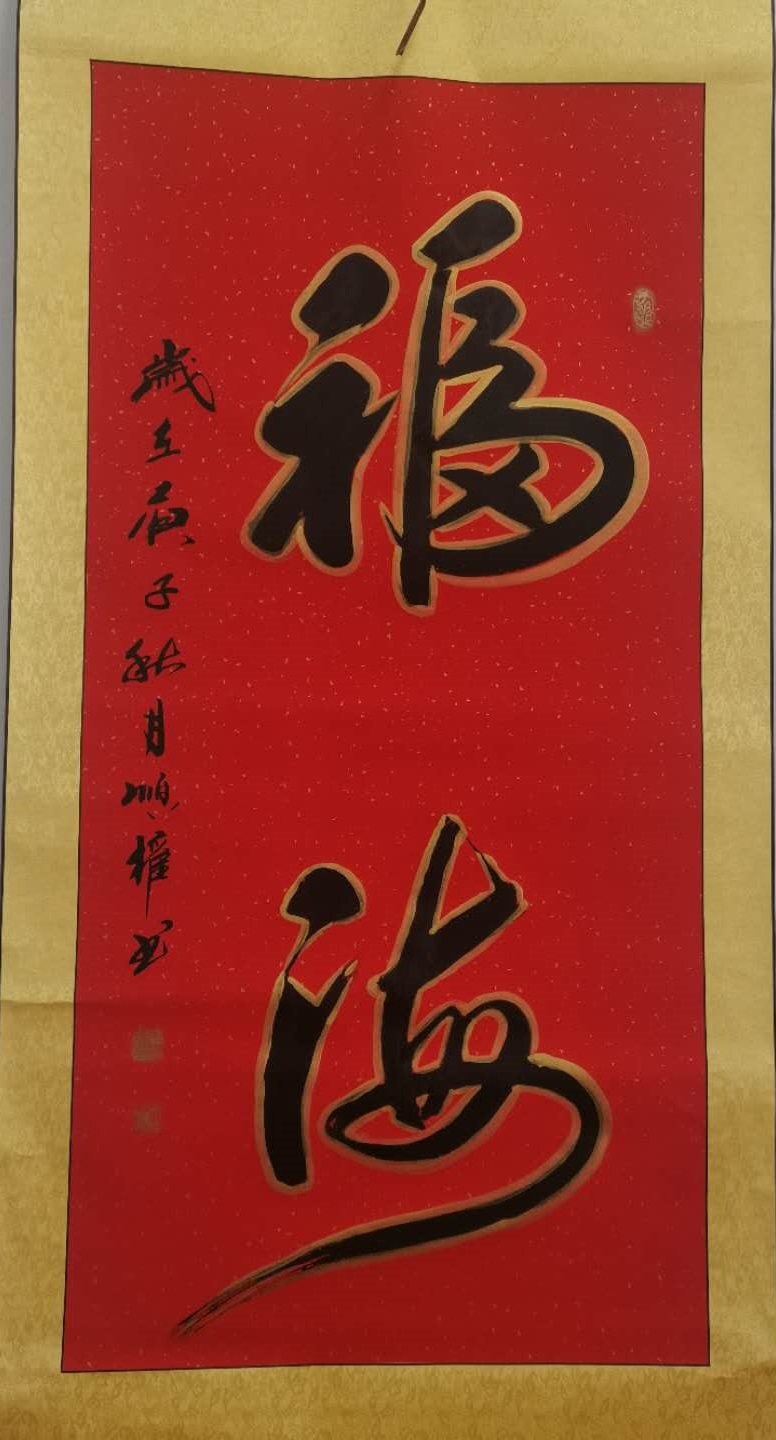 福海
歲在庚子秋月順權书